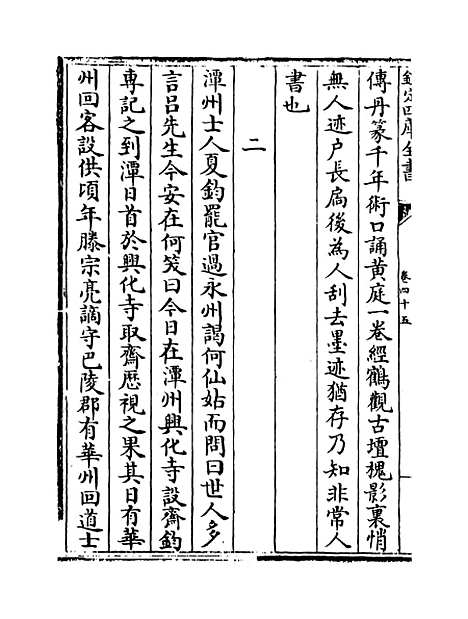 欽定四庫全書
卷四十五
傳丹篆千年術口誦黄庭一卷經鶴觀古壇槐影裏悄
無人迹户長扃後為人刮去墨迹猶存乃知非常人
書也
二
潭州士人夏鈞罷官過永州謁何仙姑而問曰世人多
言吕先生今安在何笑曰今日在潭州興化寺設齋鈞
専記之到潭日首於興化寺取齋厯視之果其日有華
州回客設供頃年滕宗亮謫守巴陵郡有華州回道士